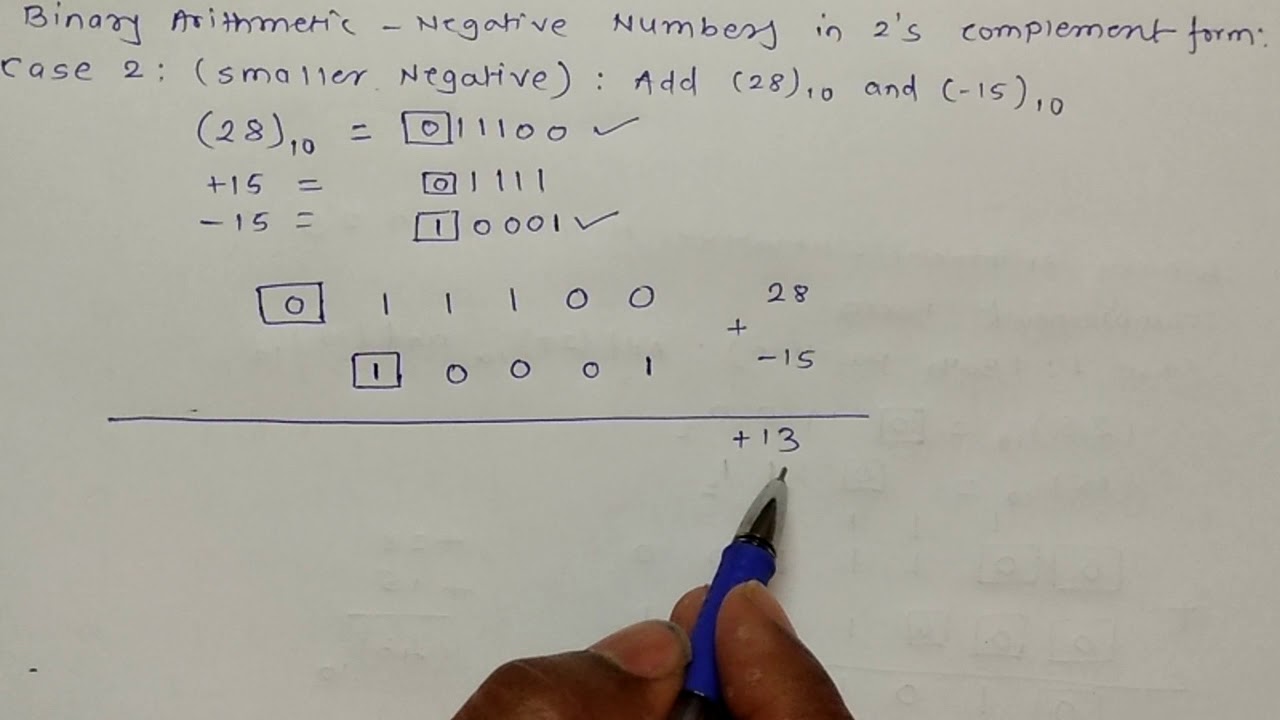 Binary Arithmetic - Negative Numbers in 2's complement form:
Case 2: (smaller Negative): Add (28)₁₀ and (-15)₁₀
(28)₁₀ = 011100 ✓
+15 = 01111
-15 = 10001 ✓
0 1 1 1 0 0 28
+
1 0 0 0 1 -15
+13